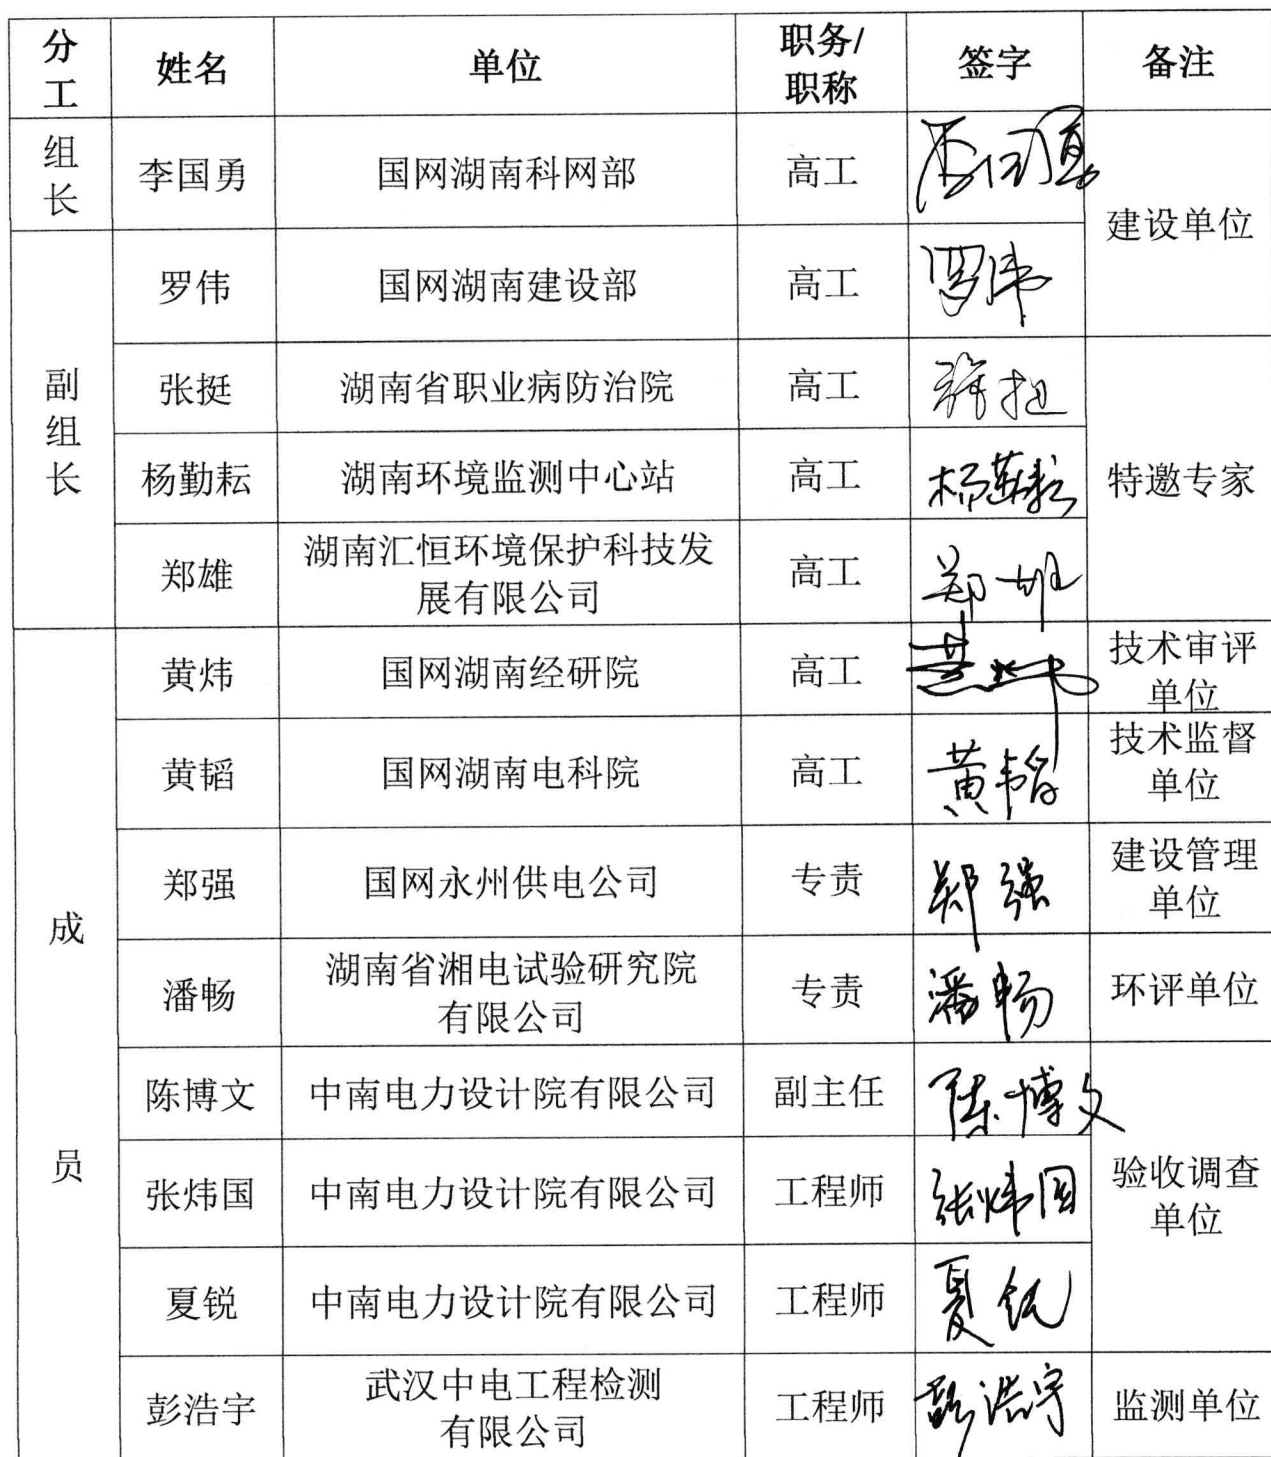 分工 姓名 单位 职务/职称 签字 备注
组长 李国勇 国网湖南科网部 高工 建设单位
副组长 罗伟 国网湖南建设部 高工 罗伟
张挺 湖南省职业病防治院 高工 特邀专家
杨勤耘 湖南环境监测中心站 高工 杨勤耘
郑雄 湖南汇恒环境保护科技发展有限公司 高工 郑雄
成员 黄炜 国网湖南经研院 高工 黄炜 技术审评单位
黄韬 国网湖南电科院 高工 黄韬 技术监督单位
郑强 国网永州供电公司 专责 郑强 建设管理单位
潘畅 湖南省湘电试验研究院有限公司 专责 潘畅 环评单位
陈博文 中南电力设计院有限公司 副主任 陈博文 验收调查单位
张炜国 中南电力设计院有限公司 工程师 张炜国
夏锐 中南电力设计院有限公司 工程师 夏锐
彭浩宇 武汉中电工程检测有限公司 工程师 彭浩宇 监测单位